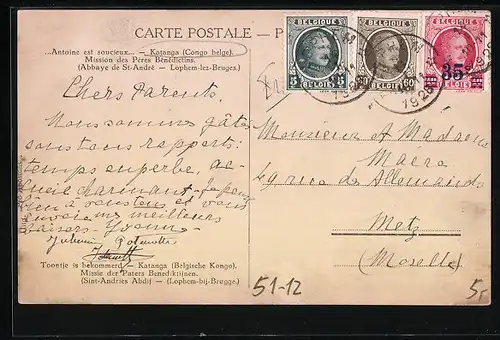 CARTE POSTALE - P
...Antoine est soucieux... — Katanga (Congo belge).
Mission des Pères Bénédictins.
(Abbaye de St-André - Lophem-lez-Bruges.)
BELGIQUE
5 5
BELGIE
BELGIQUE
60 60
BELGIE
BELGIQUE
35
BELGIE
1928
Chers Parents.
Nous sommes gâtés
sous tous rapports:
temps superbe, ac-
cueil charmant. Je pense
bien à vous tous et vous
envoie mes meilleurs
baisers. Yvonne
Monsieur et Madame
rue des Allemands
Metz
(Moselle)
Toontje is bekommerd. — Katanga (Belgische Kongo).
Missie der Paters Benediktijnen.
(Sint-Andries Abdij - (Lophem-bij-Brugge.)
51-12
5,-